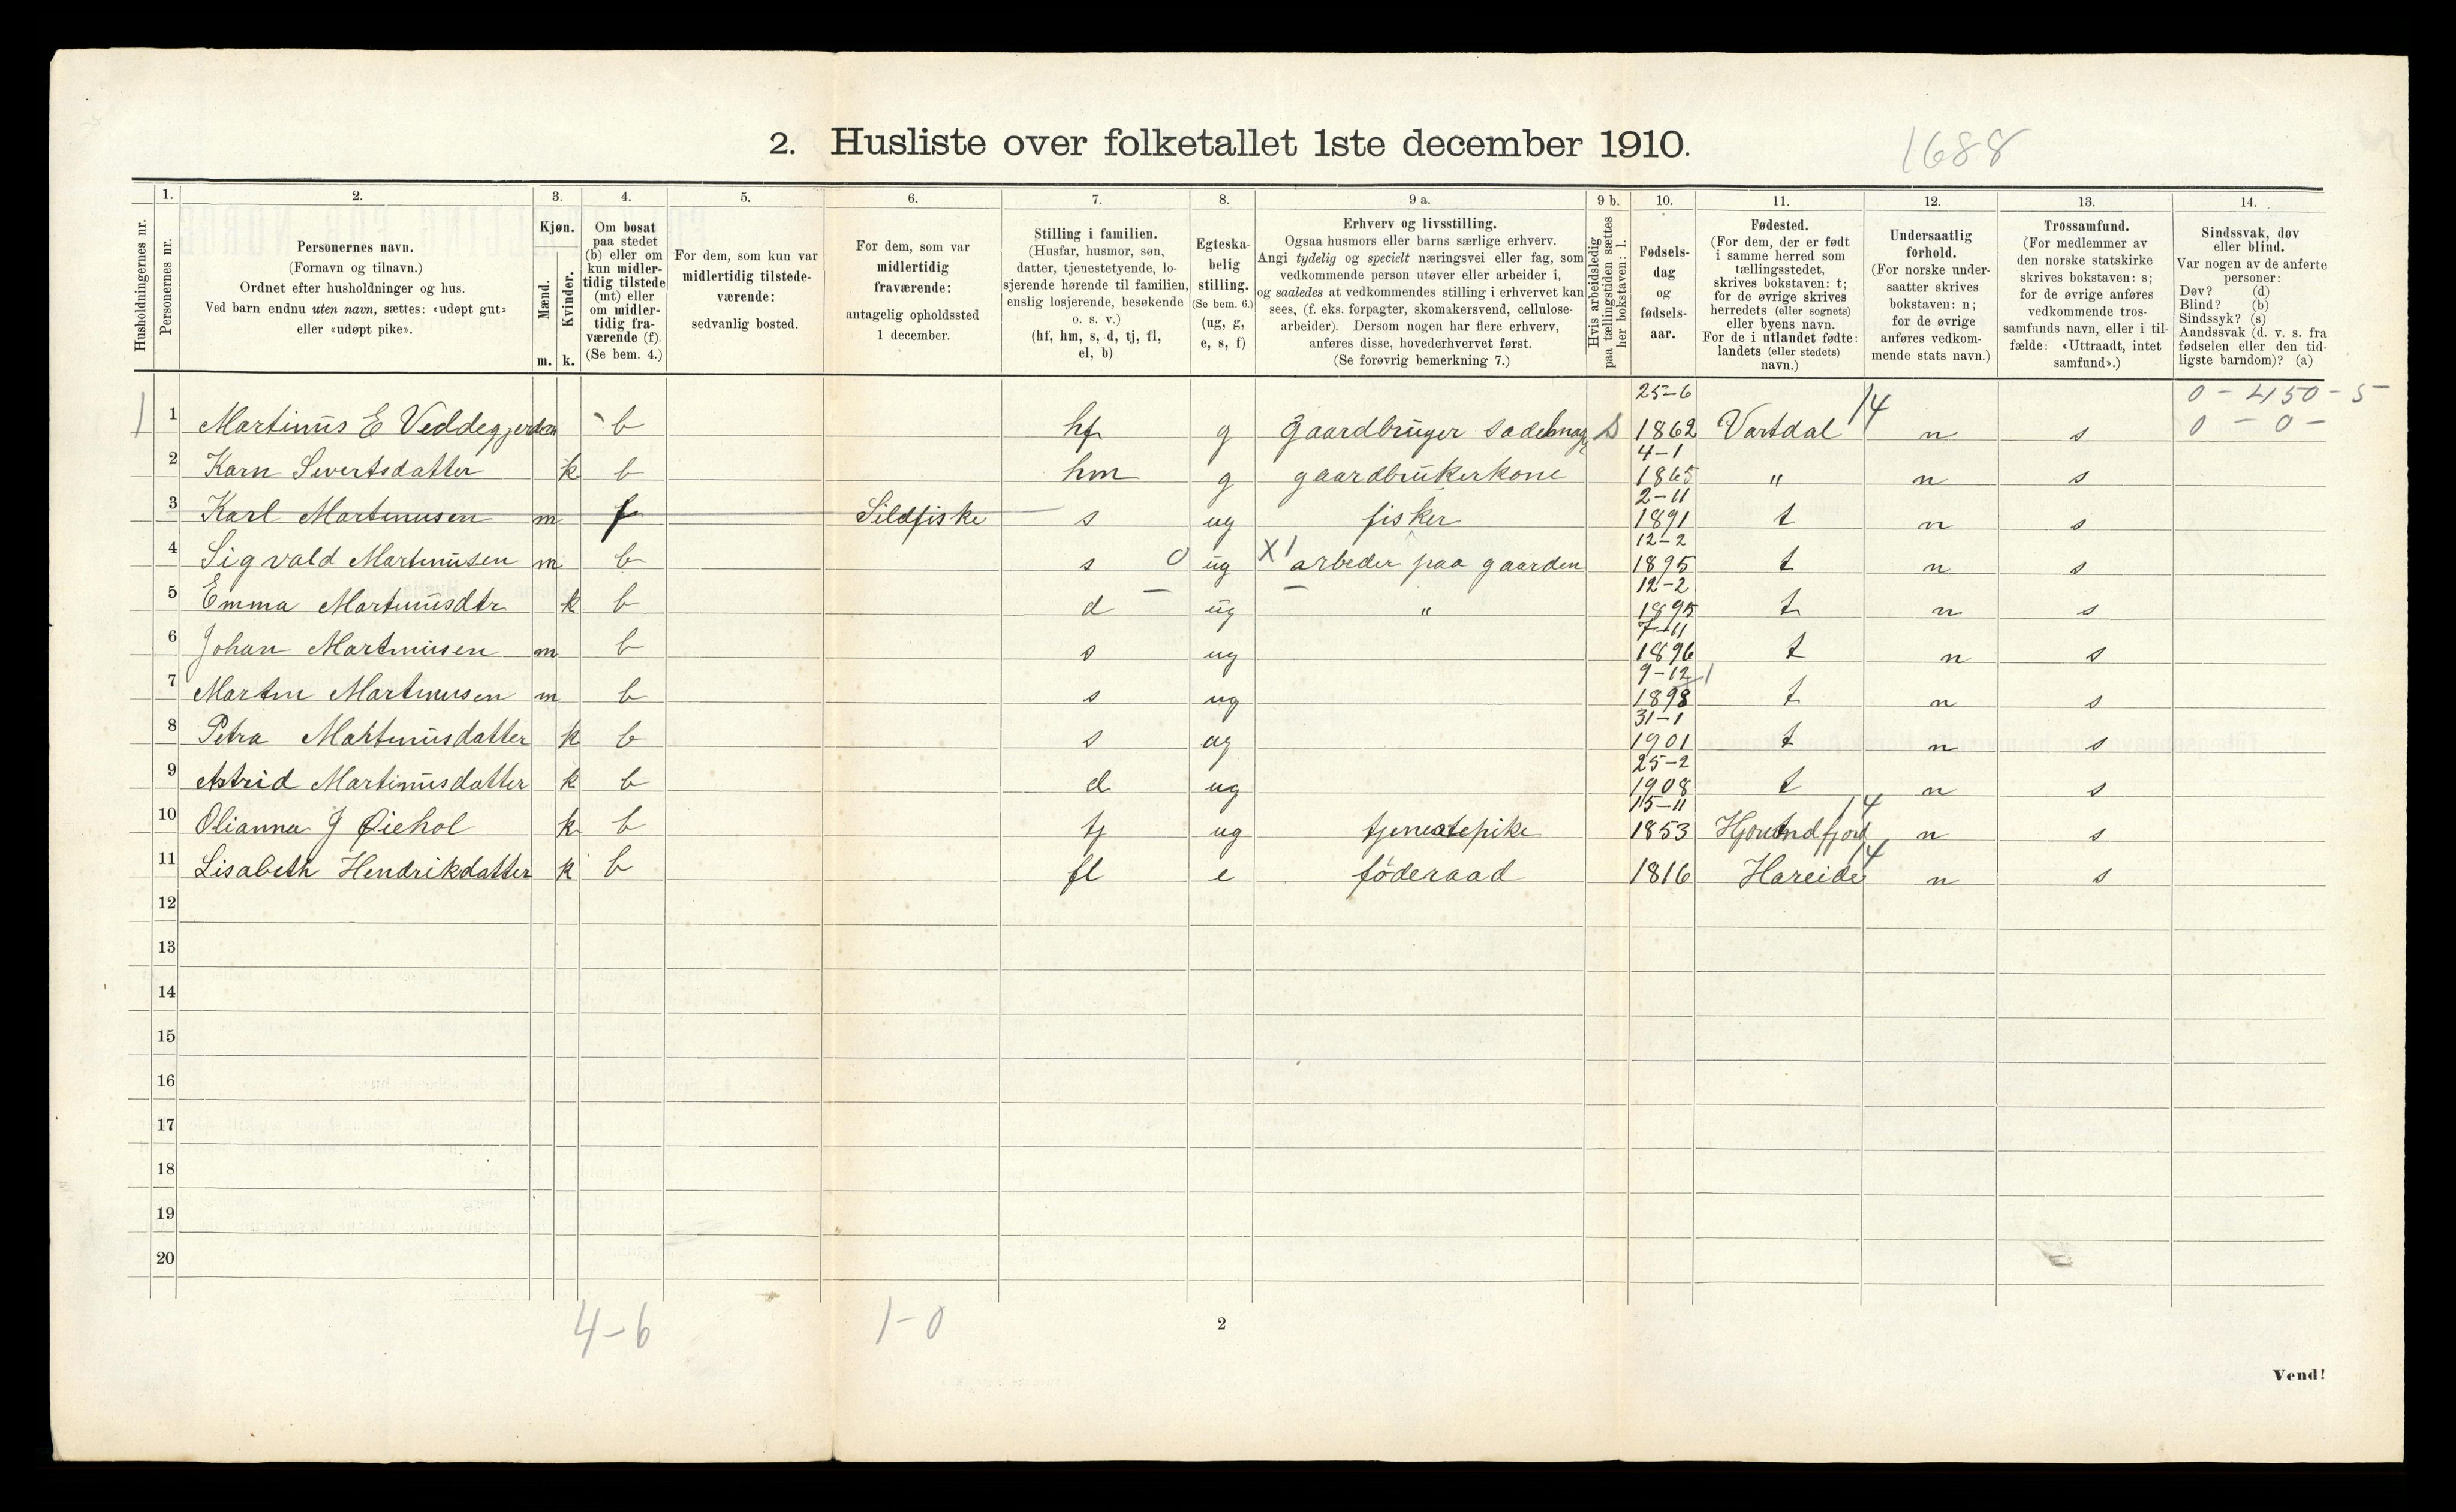 2. Husliste over folketallet 1ste december 1910.
1688
Husholdningernes nr.
1.
Personernes nr.
2.
Personernes navn.
(Fornavn og tilnavn.)
Ordnet efter husholdninger og hus.
Ved barn endnu uten navn, sættes: «udøpt gut»
eller «udøpt pike».
3.
Kjøn.
Mænd.
Kvinder.
m. k.
4.
Om bosat
paa stedet
(b) eller om
kun midler-
tidig tilstede
(mt) eller
om midler-
tidig fra-
værende (f).
(Se bem. 4.)
5.
For dem, som kun var
midlertidig tilstede-
værende:
sedvanlig bosted.
6.
For dem, som var
midlertidig
fraværende:
antagelig opholdssted
1 december.
7.
Stilling i familien.
(Husfar, husmor, søn,
datter, tjenestetyende, lo-
sjerende hørende til familien,
enslig losjerende, besøkende
o. s. v.)
(hf, hm, s, d, tj, fl,
el, b)
8.
Egteska-
belig
stilling.
(Se bem. 6.)
(ug, g,
e, s, f)
9 a.
Erhverv og livsstilling.
Ogsaa husmors eller barns særlige erhverv.
Angi tydelig og specielt næringsvei eller fag, som
vedkommende person utøver eller arbeider i,
og saaledes at vedkommendes stilling i erhvervet kan
sees, (f. eks. forpagter, skomakersvend, cellulose-
arbeider). Dersom nogen har flere erhverv,
anføres disse, hovederhvervet først.
(Se forøvrig bemerkning 7.)
9 b.
Hvis arbeidsledig
paa tællingstiden sættes
her bokstaven: l.
10.
Fødsels-
dag
og
fødsels-
aar.
11.
Fødested.
(For dem, der er født
i samme herred som
tællingsstedet,
skrives bokstaven: t;
for de øvrige skrives
herredets (eller sognets)
eller byens navn.
For de i utlandet fødte:
landets (eller stedets)
navn.)
12.
Undersaatlig
forhold.
(For norske under-
saatter skrives
bokstaven: n;
for de øvrige
anføres vedkom-
mende stats navn.)
13.
Trossamfund.
(For medlemmer av
den norske statskirke
skrives bokstaven: s;
for de øvrige anføres
vedkommende tros-
samfunds navn, eller i til-
fælde: «Uttraadt, intet
samfund».)
14.
Sindssvak, døv
eller blind.
Var nogen av de anførte
personer:
Døv? (d)
Blind? (b)
Sindssyk? (s)
Aandssvak (d. v. s. fra
fødselen eller den tid-
ligste barndom)? (a)
25-6 14 0 - 450 - 5
1 1 Martinus E Veddegjerden b hf g gaardbruger S 1862 Vartdal n s 0 - 0 -
4-1
2 Karn Sivertsdatter k b hm g gaardbrukerkone 1865 " n s
2-11
3 Karl Martinusen m f Sildfiske s ug fisker 1891 t n s
12-2
4 Sigvald Martinusen m b s 0 ug X1 arbeder paa gaarden 1895 t n s
12-2
5 Emma Martinusdtr k b d ug " 1895 t n s
7-11
6 Johan Martinusen m b s ug 1896 t n s
9-12 1
7 Martin Martinusen m b s ug 1898 t n s
31-1
8 Petra Martinusdatter k b s ug 1901 t n s
25-2
9 Astrid Martinusdatter k b d ug 1908 t n s
15-11 14
10 Olianna J Øiehol k b tj ug tjenestepike 1853 n s
14
11 Lisabeth Hendrikdatter k b fl e föderaad 1816 Hareide n s
12
13
14
15
16
17
18
19
20
4-6 1-0
2
Vend!